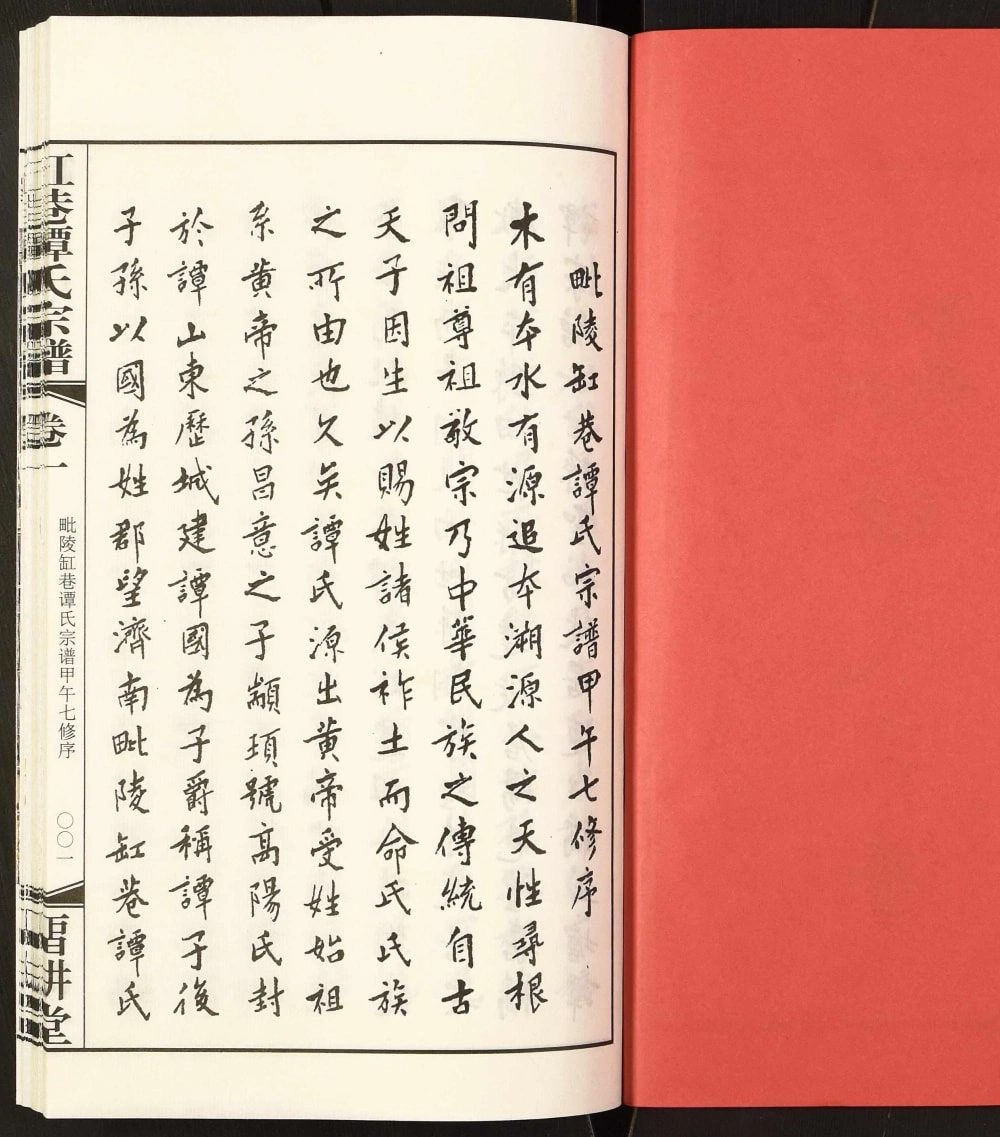 毗陵缸巷譚氏宗譜甲午七修序
木有本水有源追本溯源人之天性尋根
問祖尊祖敬宗乃中華民族之傳統自古
天子因生以賜姓諸侯祚土而命氏氏族
之所由也久矣譚氏源出黄帝受姓始祖
系黄帝之孫昌意之子顓頊號高陽氏封
於譚山東歷城建譚國為子爵稱譚子後
子孫以國為姓郡望濟南毗陵缸巷譚氏
毗陵缸巷谭氏宗谱甲午七修序
〇〇一
缸巷譚氏宗譜
卷一